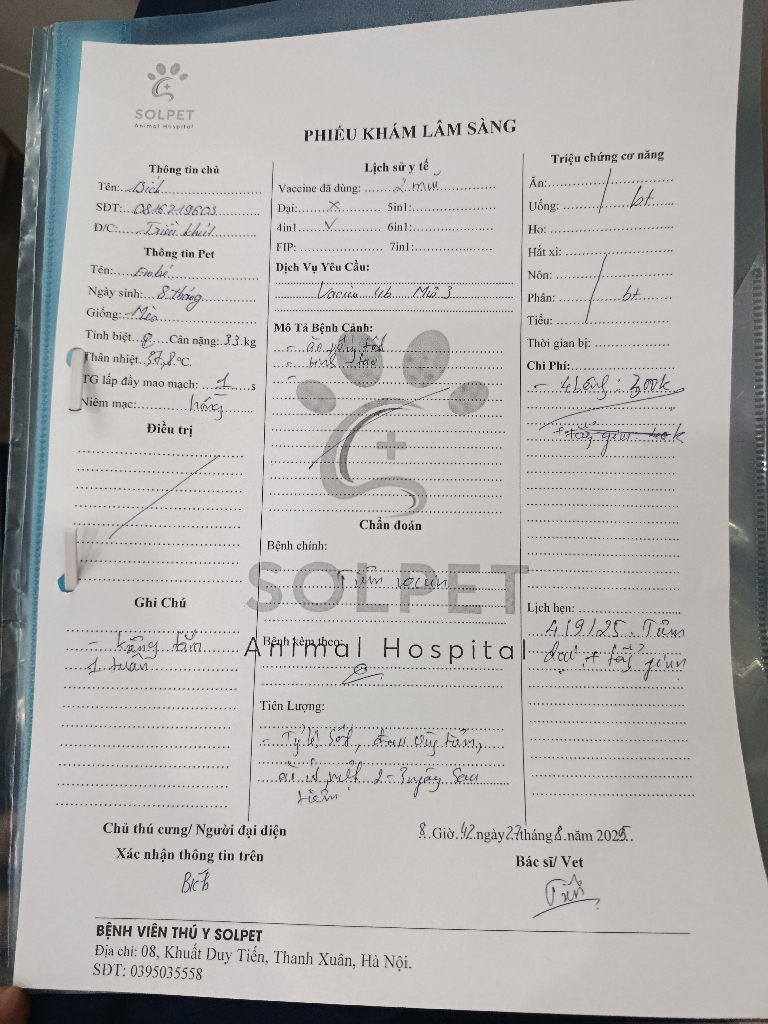 SOLPET
Animal Hospital
PHIẾU KHÁM LÂM SÀNG
Thông tin chủ
Tên: Bích
SĐT: 0816219603
Đ/C: Triều Khúc
Thông tin Pet
Tên: Embé
Ngày sinh: 8 tháng
Giống: Mèo
Tính biệt ♀ Cân nặng: 3.3 kg
Thân nhiệt 37,8 °C.
TG lấp đầy mao mạch: 1 s
Niêm mạc: hồng
Điều trị
Ghi Chú
- không tắm
1 tuần
Lịch sử y tế
Vaccine đã dùng: 2 mũi
Dại: X 5in1:
4in1 ✓ 6in1:
FIP: 7in1:
Dịch Vụ Yêu Cầu:
Vacin 4b Mũi 3
Mô Tả Bệnh Cảnh:
- ăn uống tốt
- tỉnh táo
-
SOLPET
Animal Hospital
Chẩn đoán
Bệnh chính:
Tiêm vacin
Bệnh kèm theo:
Tiên Lượng:
- Tỷ lệ sốt, đau vùng tiêm,
2-3 ngày sau
tiêm
Triệu chứng cơ năng
Ăn:
Uống: bt
Ho:
Hắt xì:
Nôn:
Phân: bt
Tiểu:
Thời gian bị:
Chi Phí:
- 4 bệnh: 200k
+ tẩy giun 40k
Lịch hẹn:
4/9/25. Tiêm
dại + tẩy giun
Chủ thú cưng/ Người đại diện
Xác nhận thông tin trên
Bích
8 Giờ 42 ngày 27 tháng 8 năm 2025.
Bác sĩ/ Vet
BỆNH VIÊN THÚ Y SOLPET
Địa chỉ: 08, Khuất Duy Tiến, Thanh Xuân, Hà Nội.
SĐT: 0395035558